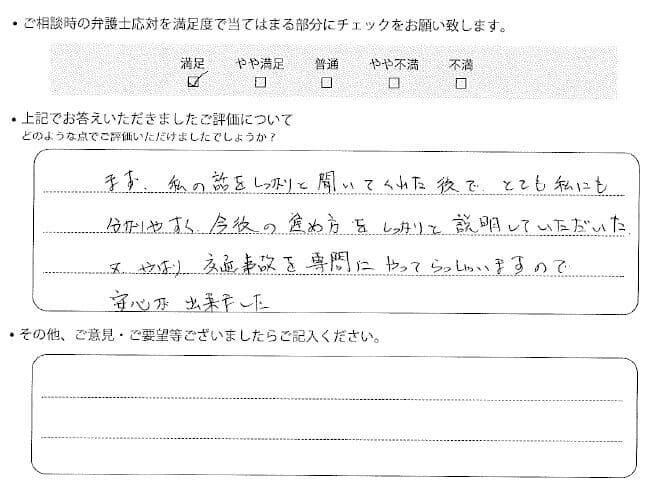 ・ご相談時の弁護士応対を満足度で当てはまる部分にチェックをお願い致します。
満足 やや満足 普通 やや不満 不満
・上記でお答えいただきましたご評価について
どのような点でご評価いただけましたでしょうか？
まず、私の話をしっかりと聞いてくれた後で、とても私にも
分かりやすく、今後の進め方をしっかりと説明していただいた。
又 やはり 交通事故を専門にやってらっしゃいますので
安心が出来ました
・その他、ご意見・ご要望等ございましたらご記入ください。